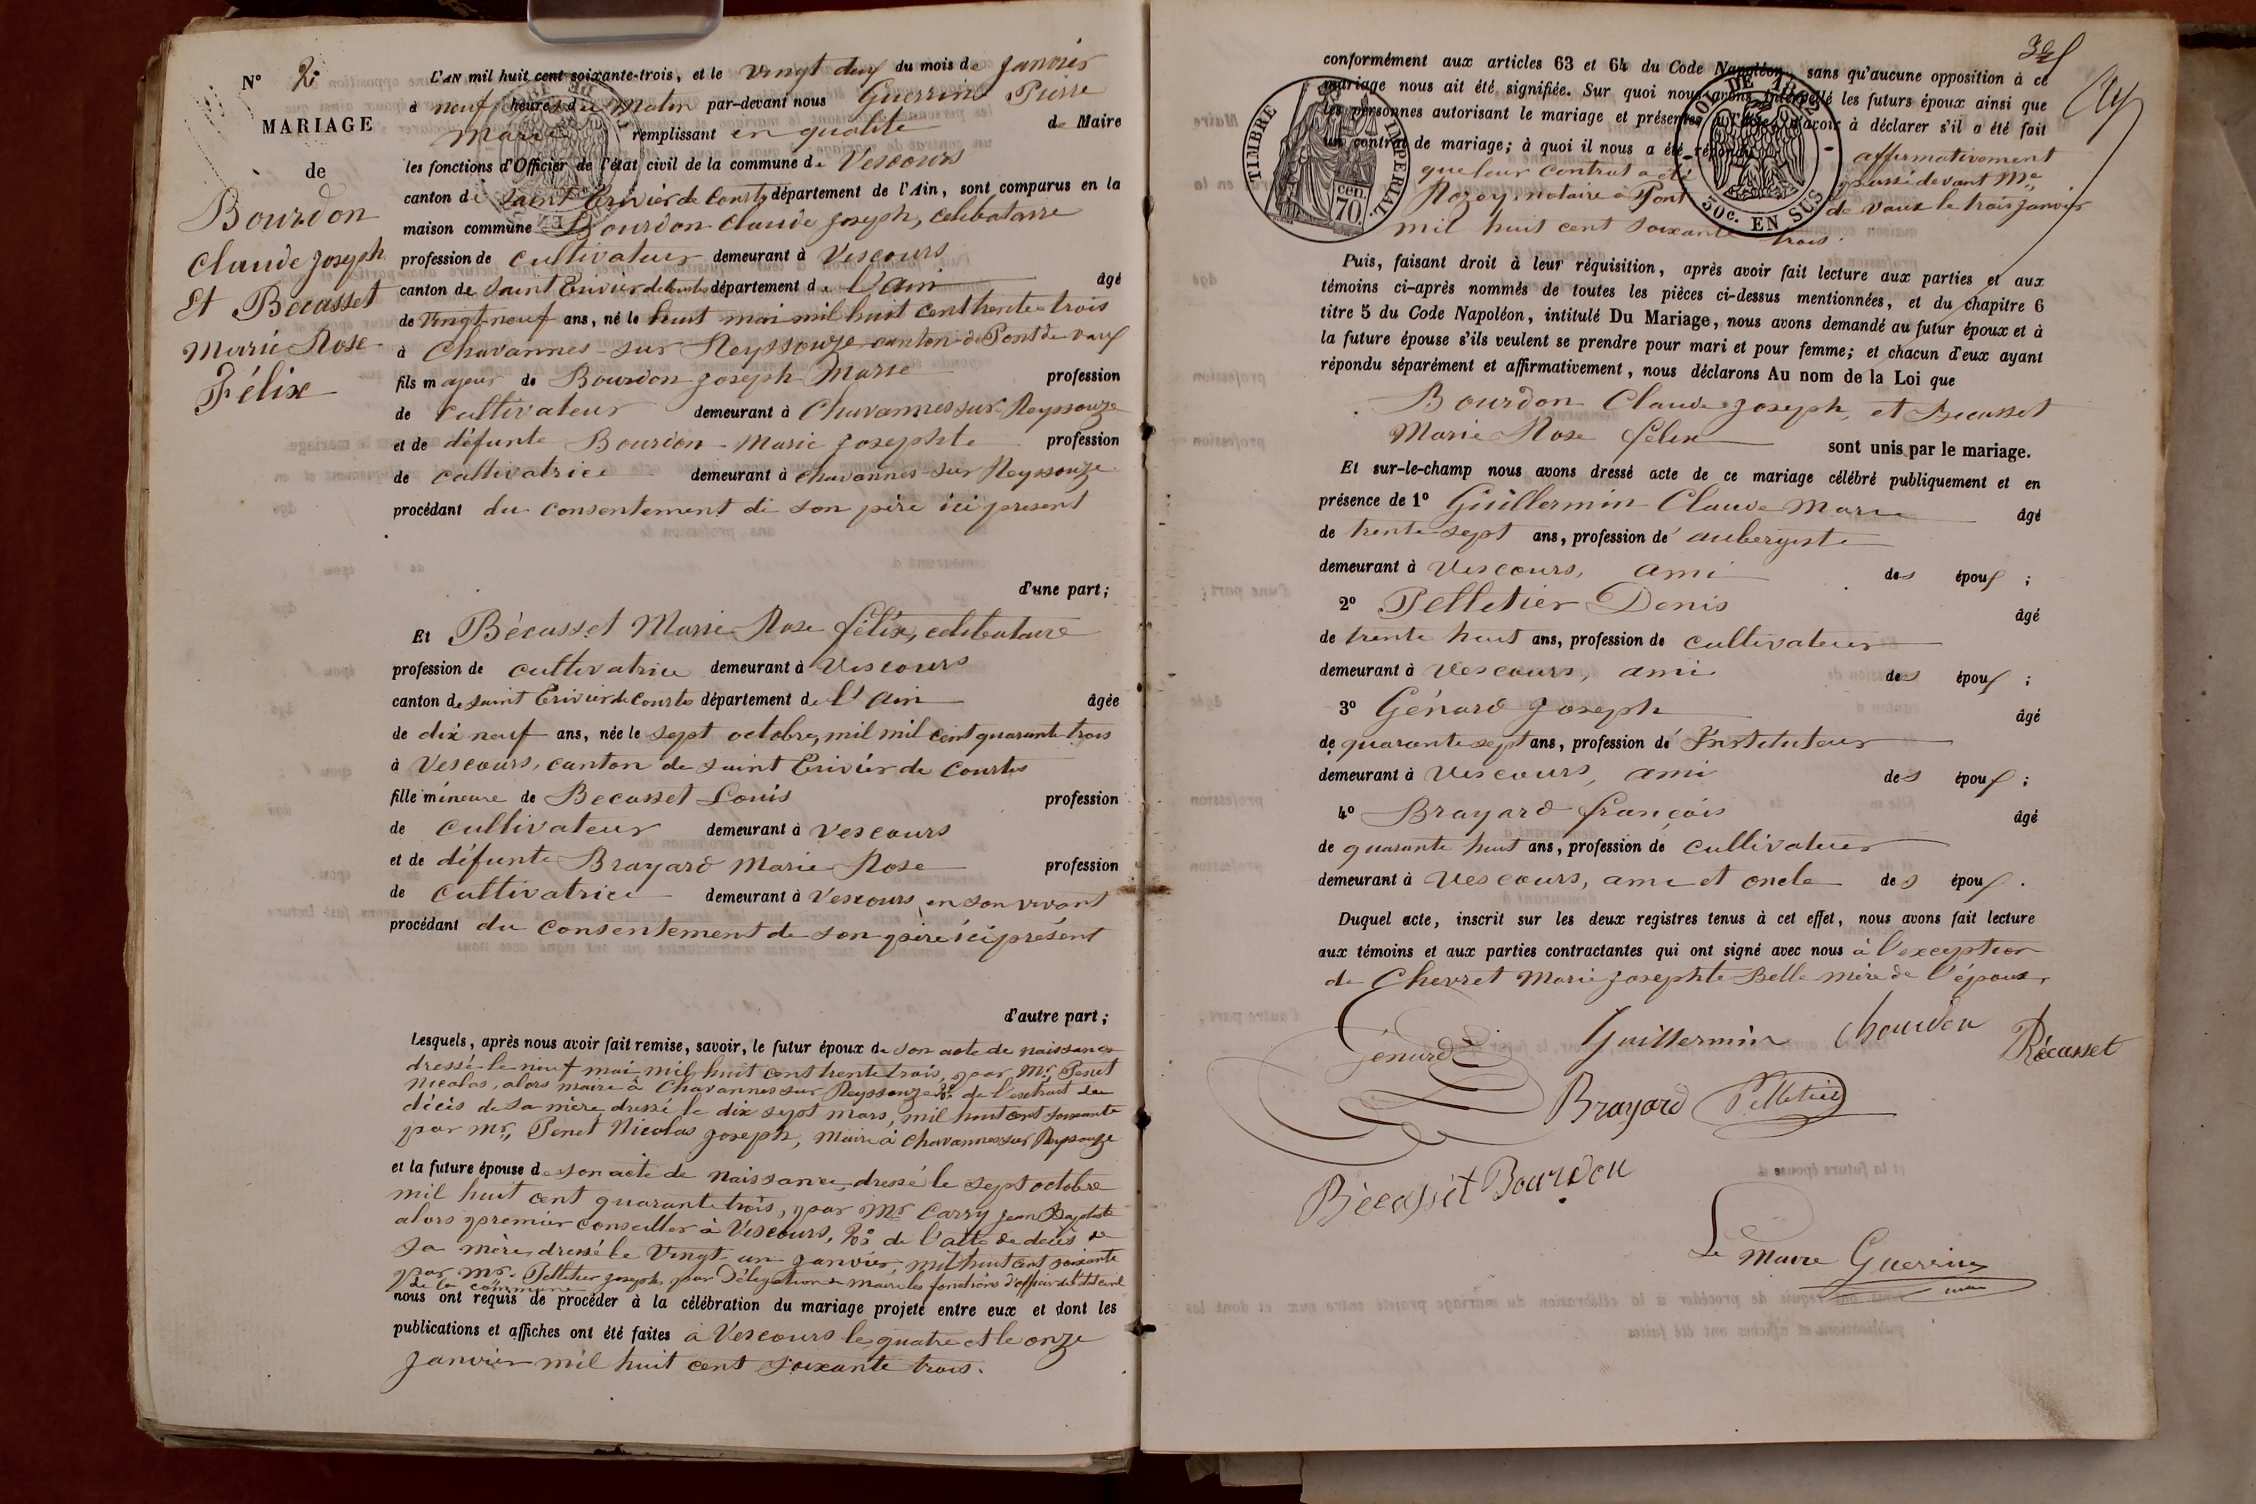 N° 2.
MARIAGE
de
Bourdon
Claude Joseph
Et Bécasset
Marie Rose
Félix
L'AN mil huit cent soixante-trois, et le vingt deux du mois de Janvier
à neuf heures du matin par-devant nous Guerrin Pierre
Marie remplissant en qualité de Maire
les fonctions d'Officier de l'état civil de la commune de Vescours
canton de Saint Trivier de Courtes département de l'Ain, sont comparus en la
maison commune Bourdon Claude Joseph, célibataire
profession de cultivateur demeurant à Vescours
canton de Saint Trivier de Courtes département de l'ain âgé
de vingt-neuf ans, né le huit mai mil huit cent trente-trois
à Chavannes-sur Reyssouze canton de Pont de vaux
fils majeur de Bourdon Joseph Marie profession
de cultivateur demeurant à Chavannes sur Reyssouze
et de défunte Bourdon Marie Josephte profession
de cultivatrice demeurant à chavannes-sur Reyssouze
procédant du consentement de son père ici présent
d'une part;
Et Bécasset Marie Rose félix, célibataire
profession de cultivatrice demeurant à Vescours
canton de Saint Trivier de Courtes département de l'Ain âgée
de dix neuf ans, née le sept octobre, mil mil cent quarante trois
à Vescours, canton de Saint Trivier de Courtes
fille mineure de Becasset Louis profession
de cultivateur demeurant à Vescours
et de défunte Brayard Marie Rose profession
de cultivatrice demeurant à Vescours, en son vivant
procédant du consentement de son père ici présent
d'autre part;
Lesquels, après nous avoir fait remise, savoir, le futur époux de son acte de naissance
dressé le neuf mai mil huit cent trente trois, par Mr. Penet
Nicolas, alors maire à Chavannes sur Reyssouze 2° de l'extrait de
décès de sa mère dressé le dix sept mars, mil huit cent soixante
par Mr., Penet Nicolas Joseph, Maire à Chavannes sur Reyssouze
et la future épouse de son acte de naissance, dressé le sept octobre
mil huit cent quarante trois, par Mr Carry Jean Baptiste
alors premier conseiller à Vescours, 2° de l'acte de décès de
sa mère, dressé le vingt un janvier mil huit cent soixante
par Mr. Pelletier Joseph, par Délégation de maire les fonctions d'officier de l'état civil
de la commune
nous ont requis de procéder à la célébration du mariage projeté entre eux et dont les
publications et affiches ont été faites à Vescours le quatre et le onze
Janvier mil huit cent soixante trois.
conformément aux articles 63 et 64 du Code Napoléon, sans qu'aucune opposition à ce
mariage nous ait été signifiée. Sur quoi nous avons interpellé les futurs époux ainsi que
les personnes autorisant le mariage et présentes à l'acte, d'avoir à déclarer s'il a été fait
un contrat de mariage; à quoi il nous a été répondu affirmativement
que leur contrat a été passé devant Me
Nozoy, notaire à Pont de Vaux le trois janvier
mil huit cent soixante trois.
TIMBRE IMPÉRIAL
cen 70
50c. EN SUS
Puis, faisant droit à leur réquisition, après avoir fait lecture aux parties et aux
témoins ci-après nommés de toutes les pièces ci-dessus mentionnées, et du chapitre 6
titre 5 du Code Napoléon, intitulé Du Mariage, nous avons demandé au futur époux et à
la future épouse s'ils veulent se prendre pour mari et pour femme; et chacun d'eux ayant
répondu séparément et affirmativement, nous déclarons Au nom de la Loi que
Bourdon Claude Joseph, et Becasset
Marie Rose félix sont unis par le mariage.
Et sur-le-champ nous avons dressé acte de ce mariage célébré publiquement et en
présence de 1° Guillermin Claude Marie âgé
de trente-sept ans, profession de aubergiste
demeurant à Vescours, ami des époux;
2° Pelletier Denis âgé
de trente huit ans, profession de cultivateur
demeurant à Vescours, ami des époux;
3° Génard Joseph âgé
de quarante sept ans, profession de Instituteur
demeurant à Vescours, ami des époux;
4° Brayard françois âgé
de quarante huit ans, profession de cultivateur
demeurant à Vescours, ami et oncle des époux.
Duquel acte, inscrit sur les deux registres tenus à cet effet, nous avons fait lecture
aux témoins et aux parties contractantes qui ont signé avec nous à l'exception
de Chevret Marie Josephte Belle mère de l'époux.
Génard Guillermin bourdon Bécasset
Brayard Pelletier
Bécasset Bourdon
Le Maire Guerrin